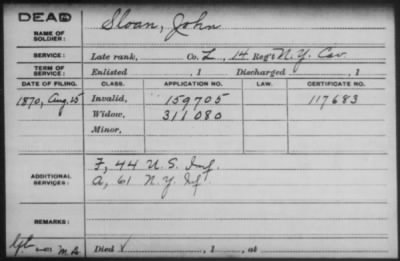 DEAD
NAME OF SOLDIER: Sloan, John
SERVICE: Late rank, Co. L, 14 Reg't N.Y. Cav.
TERM OF SERVICE: Enlisted , 1 Discharged , 1
DATE OF FILING. CLASS. APPLICATION NO. LAW. CERTIFICATE NO.
1870, Aug. 15 Invalid, 159705 117683
Widow, 311080
Minor,
F, 44 U.S. Inf.
ADDITIONAL SERVICES: A, 61 N.Y. Inf.
REMARKS:
Died , 1 , at